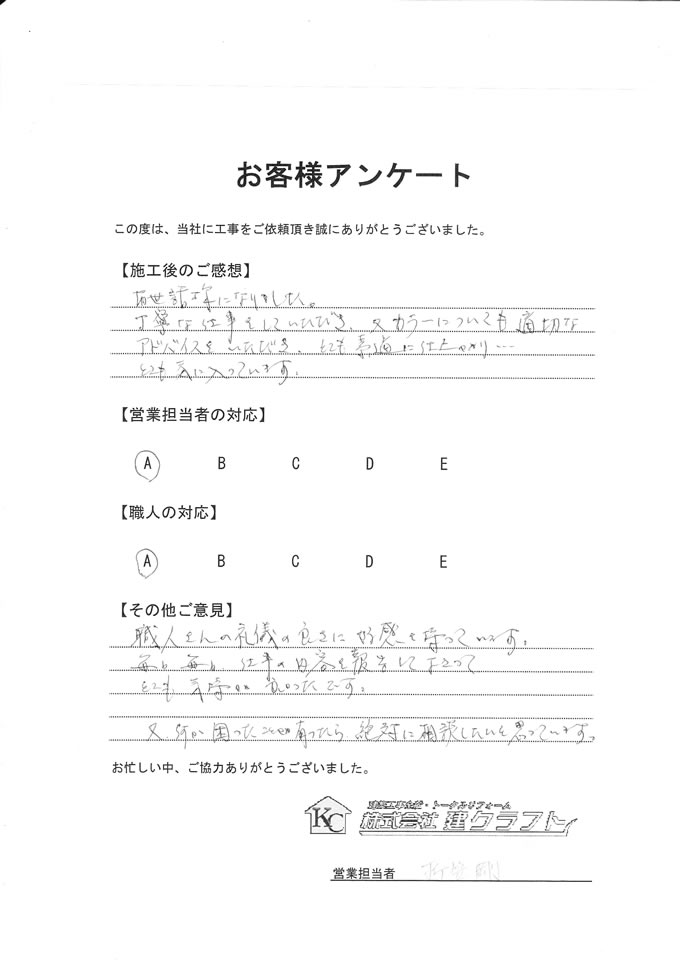 お客様アンケート
この度は、当社に工事をご依頼頂き誠にありがとうございました。
【施工後のご感想】
お世話様になりました。
丁寧な仕事をしていただき、又カラーについても適切な
アドバイスをいただき、とても素適に仕上がり…
とても気に入っています。
【営業担当者の対応】
A B C D E
【職人の対応】
A B C D E
【その他ご意見】
職人さんの礼儀の良さに好感を持っています。
毎日毎日仕事の内容を報告して下さって
とても気持が良かったです。
又何か困った事が有ったら絶対に相談したいと思っています。
お忙しい中、ご協力ありがとうございました。
建築工事全般・トータルリフォーム
KC 株式会社 建クラフト
営業担当者